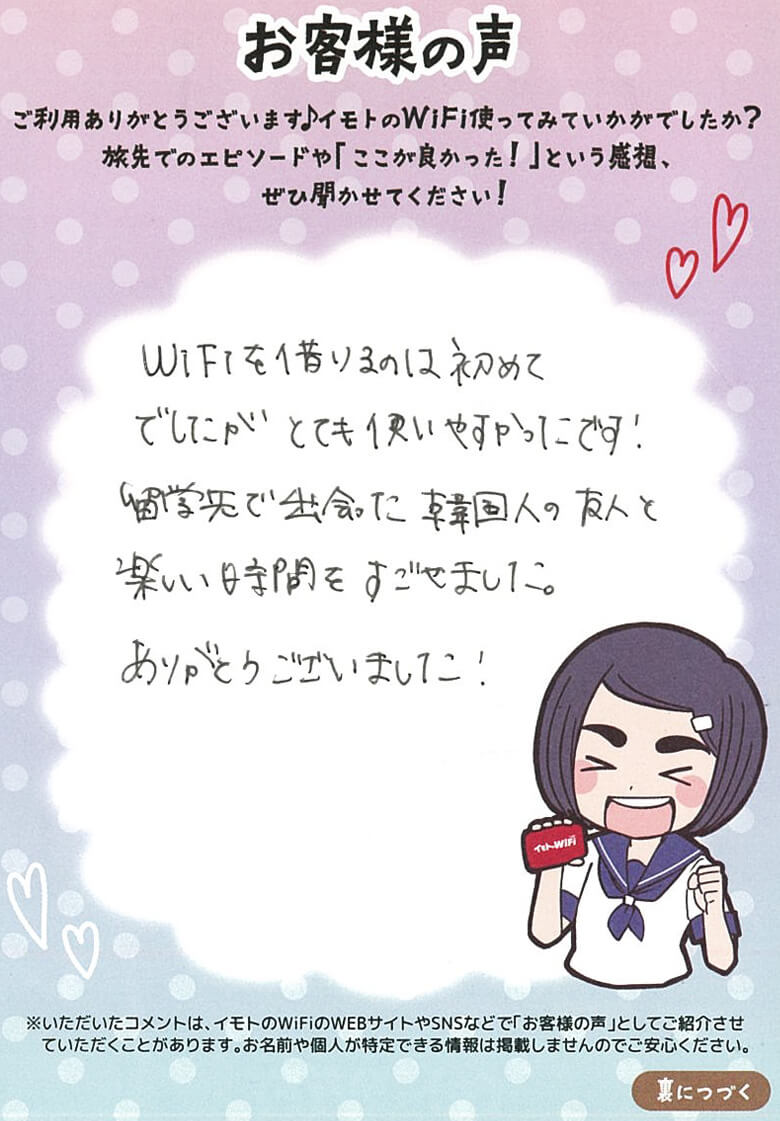 お客様の声
ご利用ありがとうございます♪イモトのWiFi使ってみていかがでしたか?
旅先でのエピソードや「ここが良かった!」という感想、
ぜひ聞かせてください!
WiFiを借りるのは初めて
でしたが とても使いやすかったです!
留学先で出会った韓国人の友人と
楽しい時間をすごせました。
ありがとうございました!
イモトのWiFi
※いただいたコメントは、イモトのWiFiのWEBサイトやSNSなどで「お客様の声」としてご紹介させ
ていただくことがあります。お名前や個人が特定できる情報は掲載しませんのでご安心ください。
裏につづく